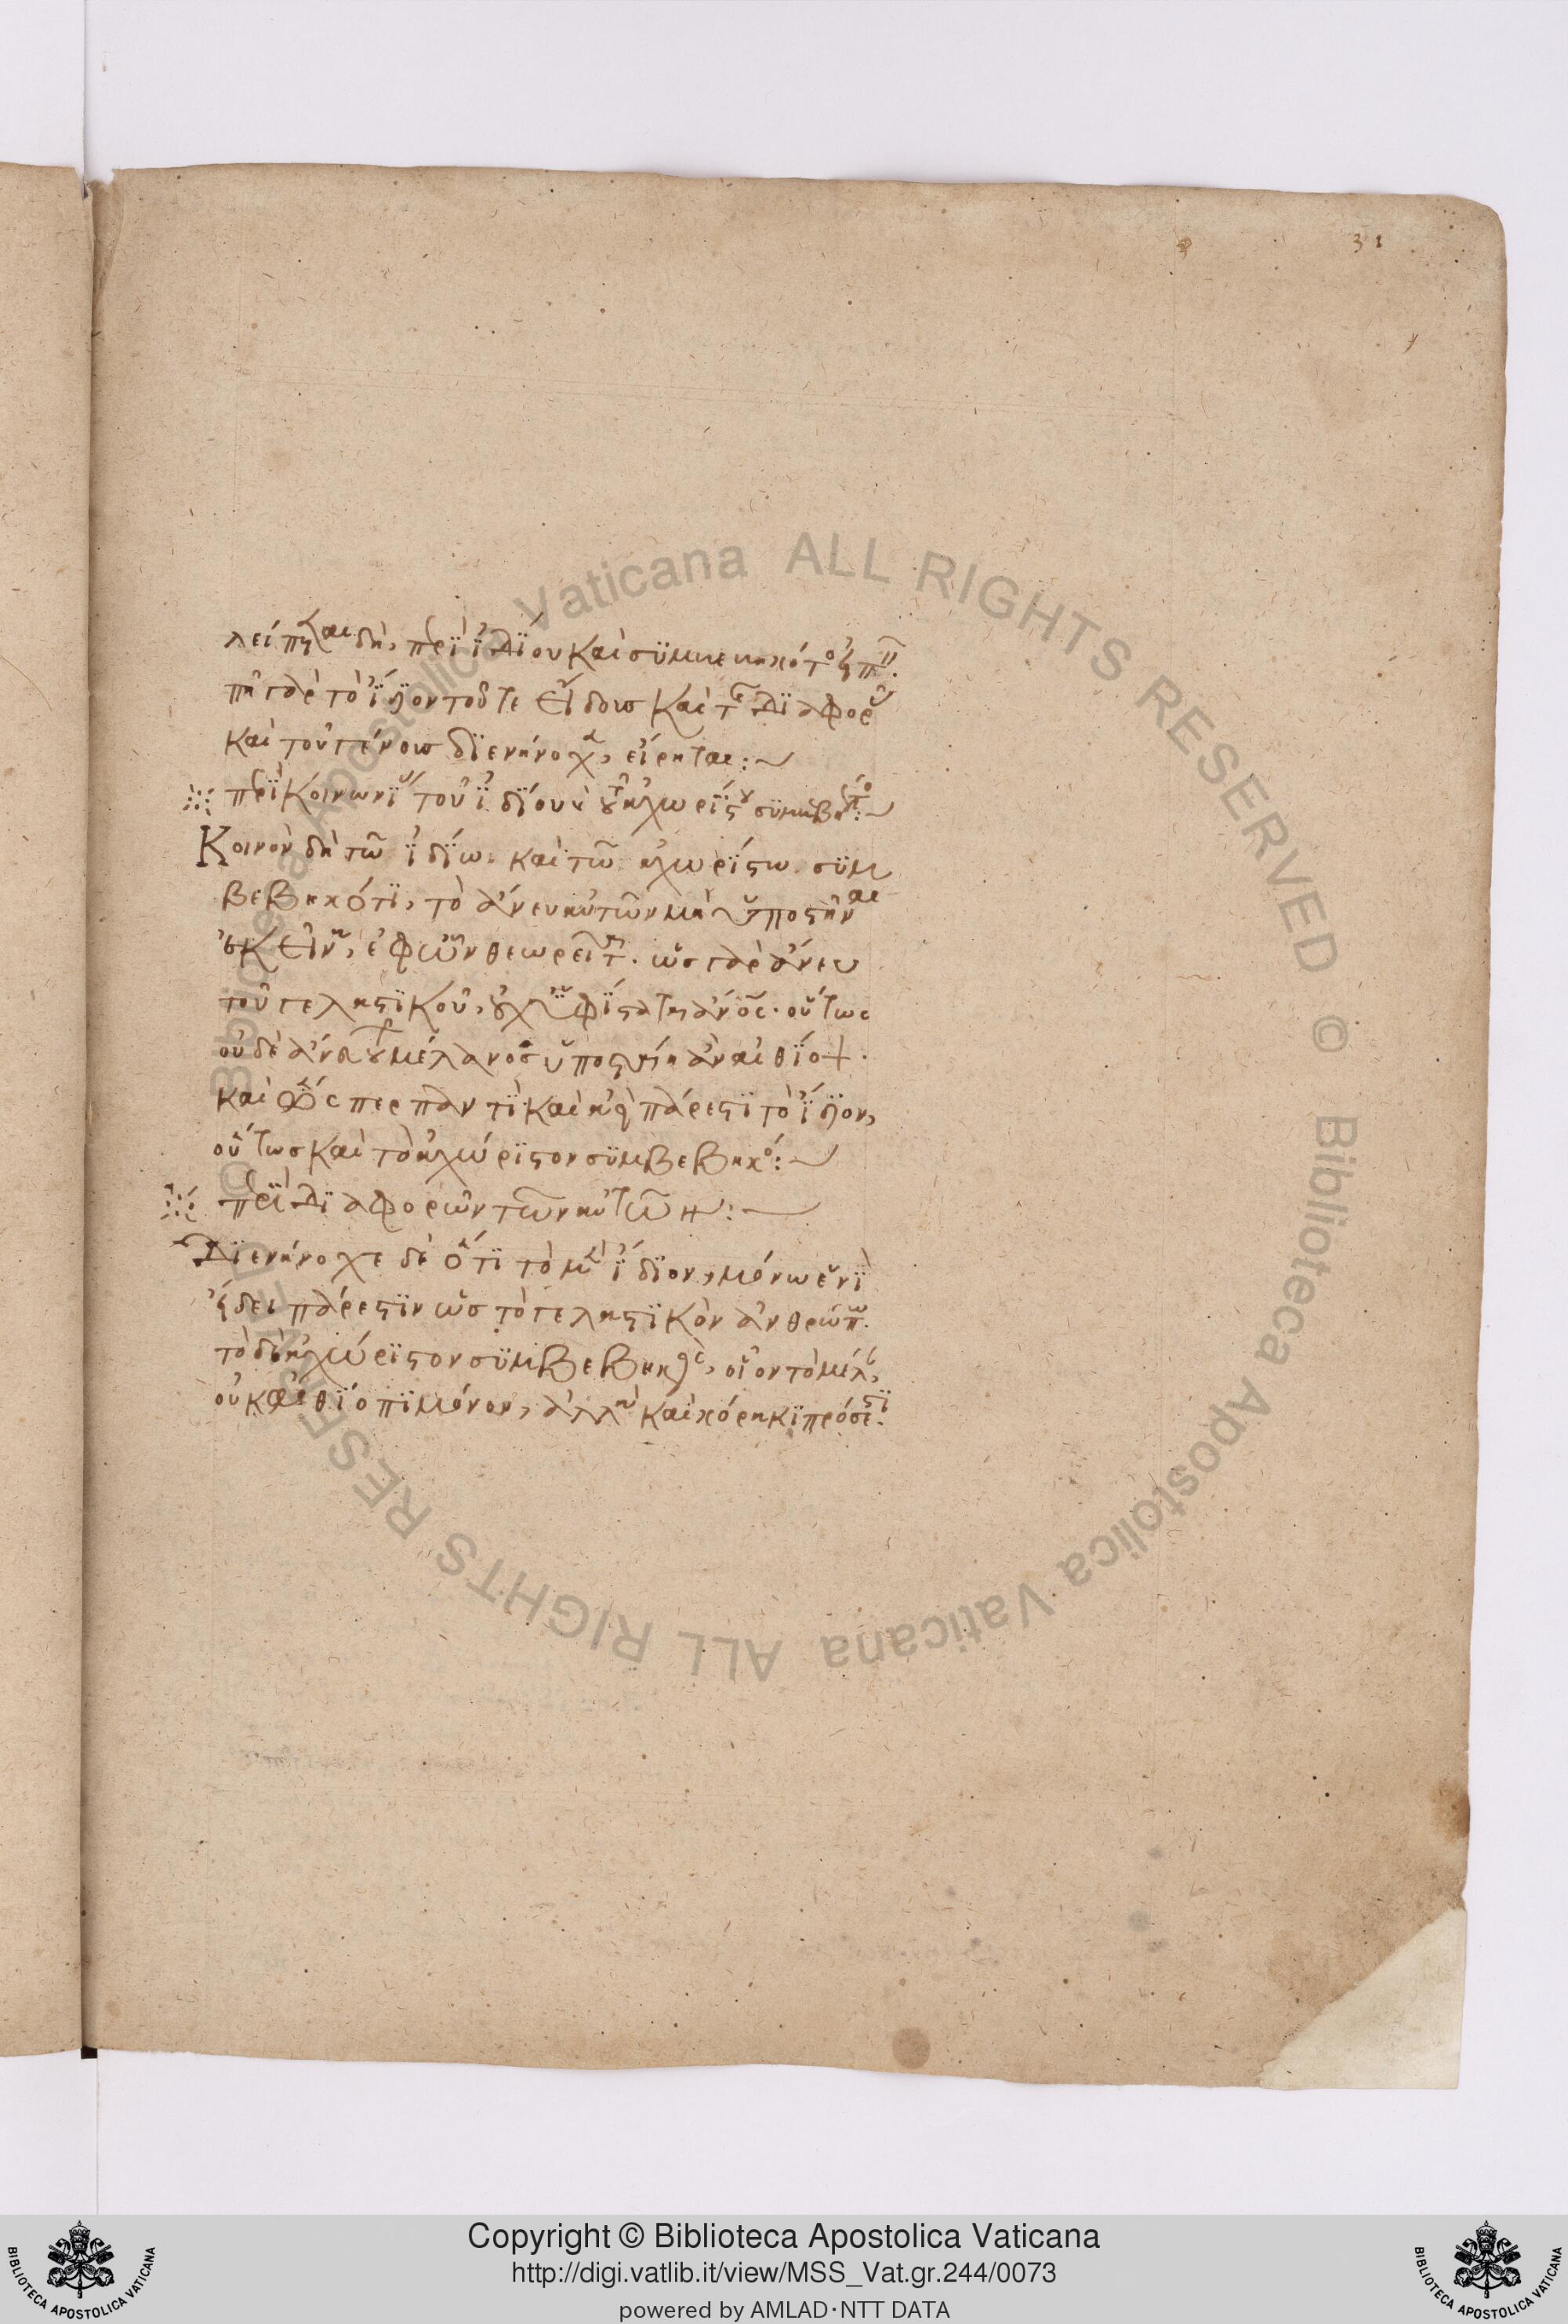 31
λείπεται δὴ, περὶ ἰδίου καὶ συμβεβηκότος εἰπεῖν.
πῆ γὰρ τὸ ἴδιον τοῦ τε εἴδους καὶ τῆς διαφορᾶς
καὶ τοῦ γένους διενήνοχεν, εἴρηται:
περὶ κοινωνίας τοῦ ἰδίου καὶ τοῦ ἀχωρίστου συμβεβηκότος:
Κοινὸν δὴ τῷ ἰδίῳ καὶ τῷ ἀχωρίστῳ συμ
βεβηκότι, τὸ ἄνευ αὐτῶν μὴ ὑποστῆναι
ἐκεῖνα, ἐφ' ὧν θεωρεῖται. ὡς γὰρ ἄνευ
τοῦ γελαστικοῦ, οὐχ ὑφίσταται ἄνθρωπος. οὕτως
οὐδὲ ἄνευ τοῦ μέλανος ὑποσταίη ἂν αἰθίοψ.
καὶ ὥσπερ παντὶ καὶ ἀεὶ πάρεστι τὸ ἴδιον,
οὕτως καὶ τὸ ἀχώριστον συμβεβηκός:
περὶ διαφορῶν τῶν αὐτῶν:
Διενήνοχε δὲ ὅτι τὸ μὲν ἴδιον, μόνῳ ἑνὶ
εἴδει πάρεστιν ὡς τὸ γελαστικὸν ἀνθρώπῳ.
τὸ δὲ ἀχώριστον συμβεβηκός, οἷον τὸ μέλαν,
οὐκ αἰθίοπι μόνον, ἀλλὰ καὶ κόρακι πρόσεστι.
Copyright © Biblioteca Apostolica Vaticana
http://digi.vatlib.it/view/MSS_Vat.gr.244/0073
powered by AMLAD·NTT DATA
BIBLIOTECA APOSTOLICA VATICANA
BIBLIOTECA APOSTOLICA VATICANA
© Biblioteca Apostolica Vaticana ALL RIGHTS RESERVED © Biblioteca Apostolica Vaticana ALL RIGHTS RESERVED